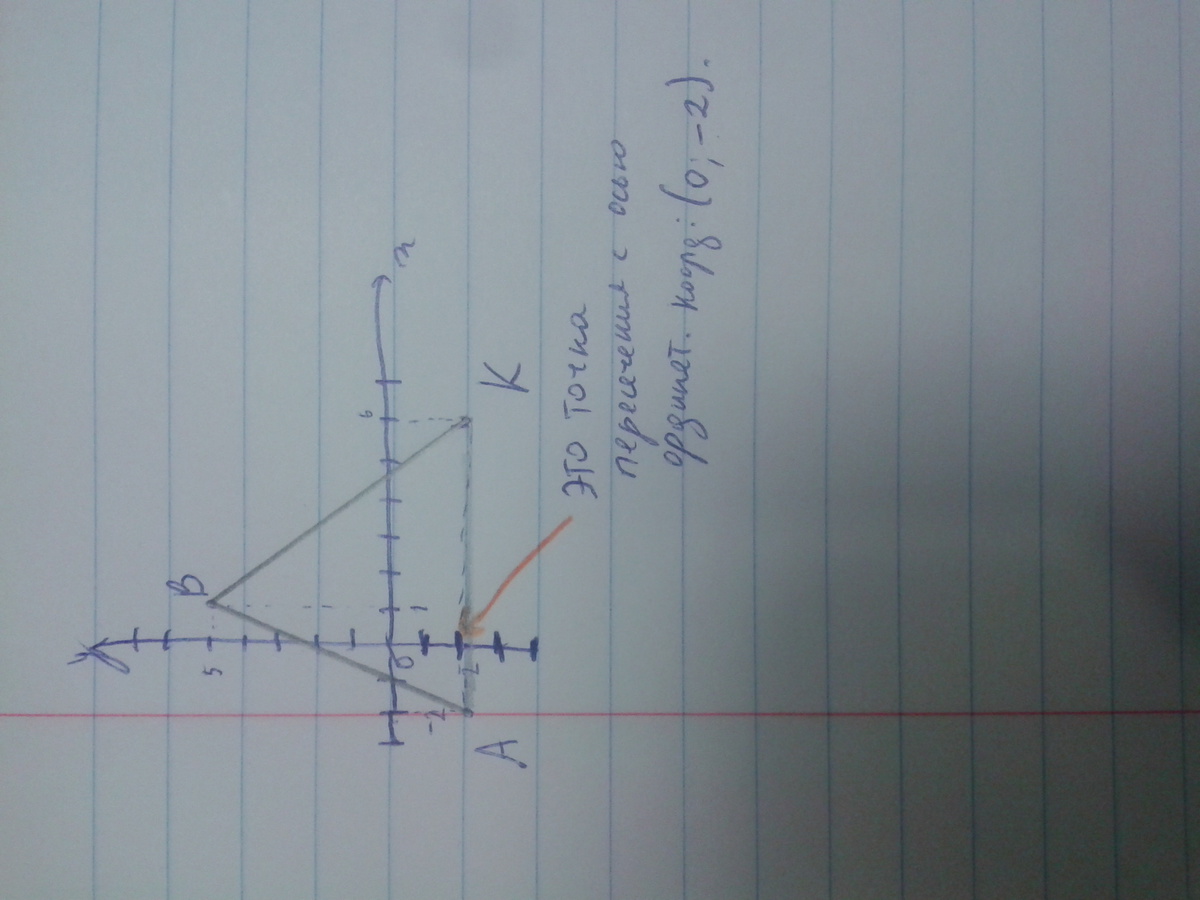 y
B
5
x
6
1
0
-2
-2
A
K
это точка
пересечения с осью
ординат. коорд: (0; -2).